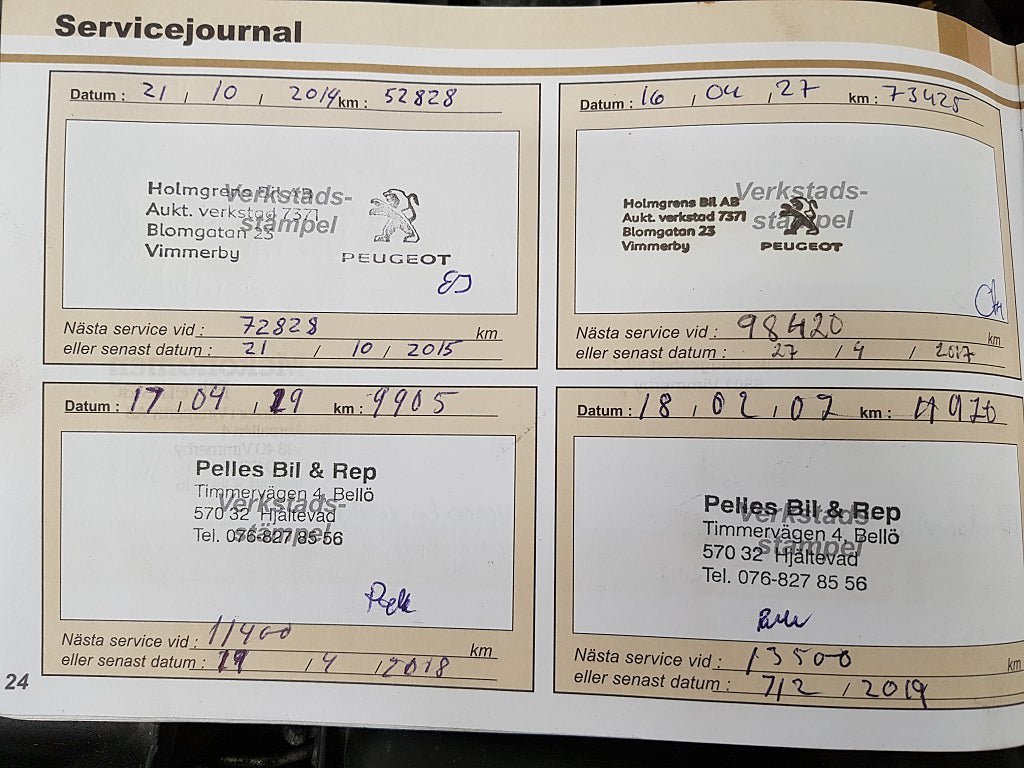 Servicejournal
Datum : 21 / 10 / 2014 km : 52828
Verkstads-
stämpel
Holmgrens Bil AB
Aukt. verkstad 7371
Blomgatan 23
Vimmerby
PEUGEOT
Nästa service vid : 72828 km
eller senast datum : 21 / 10 / 2015
Datum : 16 / 04 / 27 km : 73425
Verkstads-
stämpel
Holmgrens Bil AB
Aukt. verkstad 7371
Blomgatan 23
Vimmerby
PEUGEOT
Nästa service vid : 98420 km
eller senast datum : 27 / 4 / 2017
Datum : 17 / 04 / 19 km : 9905
Verkstads-
stämpel
Pelles Bil & Rep
Timmervägen 4, Bellö
570 32 Hjältevad
Tel. 076-827 85 56
Nästa service vid : 11400 km
eller senast datum : 19 / 4 / 2018
Datum : 18 / 02 / 07 km :
Verkstads-
stämpel
Pelles Bil & Rep
Timmervägen 4, Bellö
570 32 Hjältevad
Tel. 076-827 85 56
Nästa service vid : 13500 km
eller senast datum : 7/2 / 2019
24